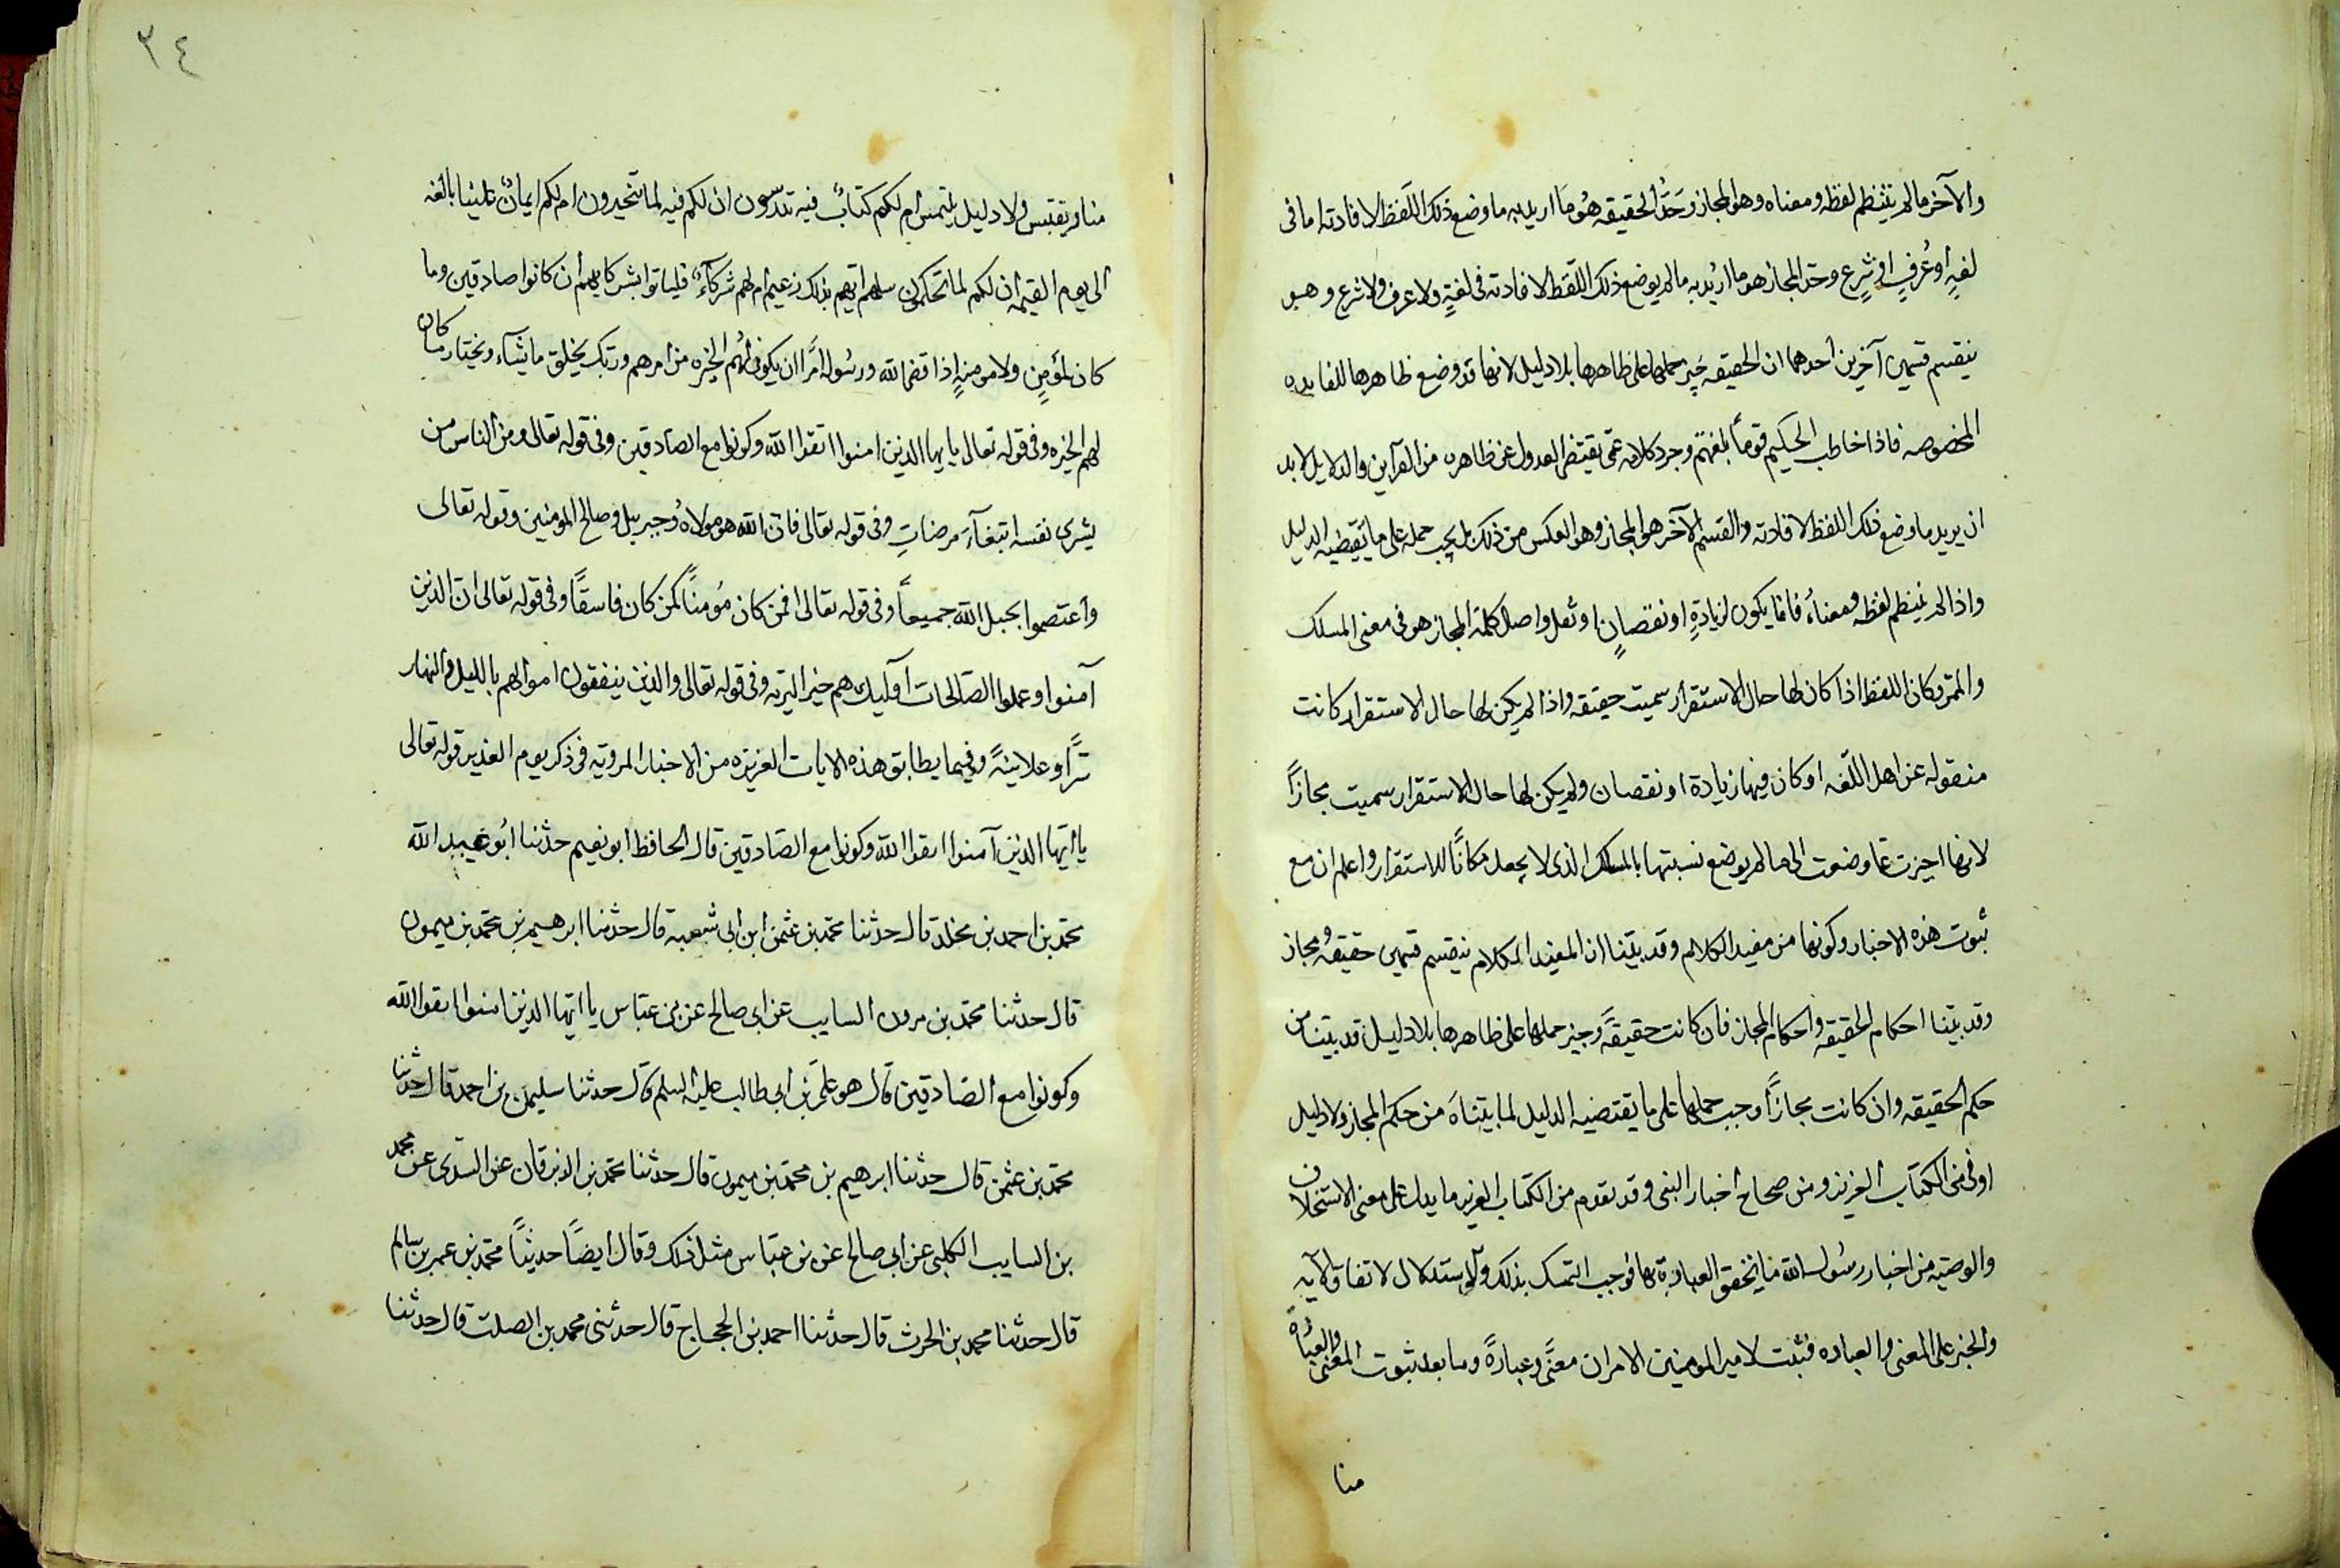 والآخر ما لم ينتظم لفظه ومعناه وهو المجاز وحَدُّ الحقيقه هُو مَا اريد به ما وضع ذلك اللفظ لافادته اما فى
لغةٍ أو عُرفٍ او شرعٍ وحدّ المجاز هو ما اُريد به ما لم يوضع ذلك اللّفظ لافادته فى لغةٍ ولا عرف ولا شرع وهو
ينقسم قسمين آخرين احدهما ان الحقيقه يجب حملها على ظاهرها بلا دليل لانها قد وضع ظاهرها للفايده
المخصوصه فاذا خاطب الحكيم قوماً بلغتهم وجرد كلامه عمّا يقتضى العدول عن ظاهره من القرآين والدلايل لابد
ان يريد ما وضع ذلك اللفظ لافادته والقسم الآخر هو المجاز وهو العكس من ذلك بل يجب حمله على ما يقتضيه الدليل
واذا لم ينتظم لفظه ومعناهُ فانما يكون لزيادةٍ او نقصانٍ او ثقل واصل كلمة المجاز هو فى معنى المسلك
والممر وكان اللفظ اذا كان لها حال الاستقرار سميت حقيقه واذا لم يكن لها حال الاستقرار كانت
منقوله عن اهل اللّغه او كان فيها زيادة او نقصان ولم يكن لها حال الاستقرار سميت مجازاً
لانها اجيزت عمّا وضعت الى ما لم يوضع نسبتها بالمسلك الذى لا يجعل مكاناً للاستقرار واعلم ان مع
ثبوت هذه الاخبار وكونها من مفيد الكلام وقد بيّنا ان المفيد الكلام ينقسم قسمين حقيقه ومجاز
وقد بيّنا احكام الحقيقه واحكام المجاز فان كانت حقيقةً وجب حملها على ظاهرها بلا دليل قد بيّنا من
حكم الحقيقه وان كانت مجازاً وجب حملها على ما يقتضيه الدليل لما بيّناهَ من حكم المجاز ولا دليل
اوفى من الكتاب العزيز ومن صحاح اخبار النبى وقد تقدم من الكتاب العزيز ما يدل على معنى الاستخلاف
والوصيّه من اخبار رسُول الله ما يحقق العبارة بها فوجب التمسك بذلك والاستدلال لاتفاق الآيه
والخبر على المعنى والعباره فثبت لامير المومنين الامران معنًى وعبارةً وما بعد ثبوت المعنى والعبارة
منا
٣٤
منا ريقتبس ولا دليل يلتمس ام لكم كتابٌ فيه تدرسون ان لكم فيه لما تخيرون ام لكم ايمانٌ علينا بالغه
الى يوم القيمه ان لكم لما تحكمون سلهم ايّهم بذلك زعيم ام لهم شركآءُ فلياتوا بشركايهم ان كانوا صادقين وما
كان لمؤمِنٍ ولا مومنةٍ إذا قضى الله ورسُوله امرًا ان يكون لهُم الخيره من امرهم وربّك يخلق ما يشآء ويختار ما كان
لهم الخيره وفى قوله تعالى يايها الذين امنوا اتقوا الله وكونوا مع الصادقين وفى قوله تعالى ومن الناس من
يشرى نفسه ابتغآءَ مرضاتِ وفى قوله تعالى فان الله هو مولاهُ وجبريل وصالح المومنين وقوله تعالى
واعتصموا بحبل الله جميعاً وفى قوله تعالى افمن كان مُومناً كمن كان فاسقًا وفى قوله تعالى ان الذين
آمنوا وعملوا الصّالحات اولٓيك هم خير البريّه وفى قوله تعالى والذين ينفقون اموالهم بالليل والنهار
سرًّا وعلانيةً وفيما يطابق هذه الايات العزيزه من الاخبار المرويّه فى ذكر يوم الغدير قوله تعالى
يا ايّها الذين آمنوا اتقوا الله وكونوا مع الصّادقين قال الحافظ ابو نعيم حدثنا ابُو عبيد الله
محمد بن احمد بن مخلد قال حدثنا محمد بن عثمن ابن ابى شيبه قال حدثنا ابرهيم بن محمد بن ميمون
قال حدثنا محمد بن مرون السايب عن ابى صالح عن بن عبّاس يا ايّها الذين امنوا اتقوا الله
وكونوا مع الصّادقين قال هو علىّ بن ابى طالب عليه السلم قال حدثنا سليمن بن احمد قال حدثنا
محمد بن عثمن قال حدثنا ابرهيم بن محمّد بن ميمون قال حدثنا محمد بن الزبرقان عن السدى عن محمد
بن السايب الكلبى عن ابى صالح عن بن عبّاس مثل ذلك وقال ايضاً حديثاً محمد بن عمر بن سالم
قال حدثنا محمد بن الحرث قال حدثنا احمد بن الحجاج قال حدثنى محمد بن الصلت قال حدثنا